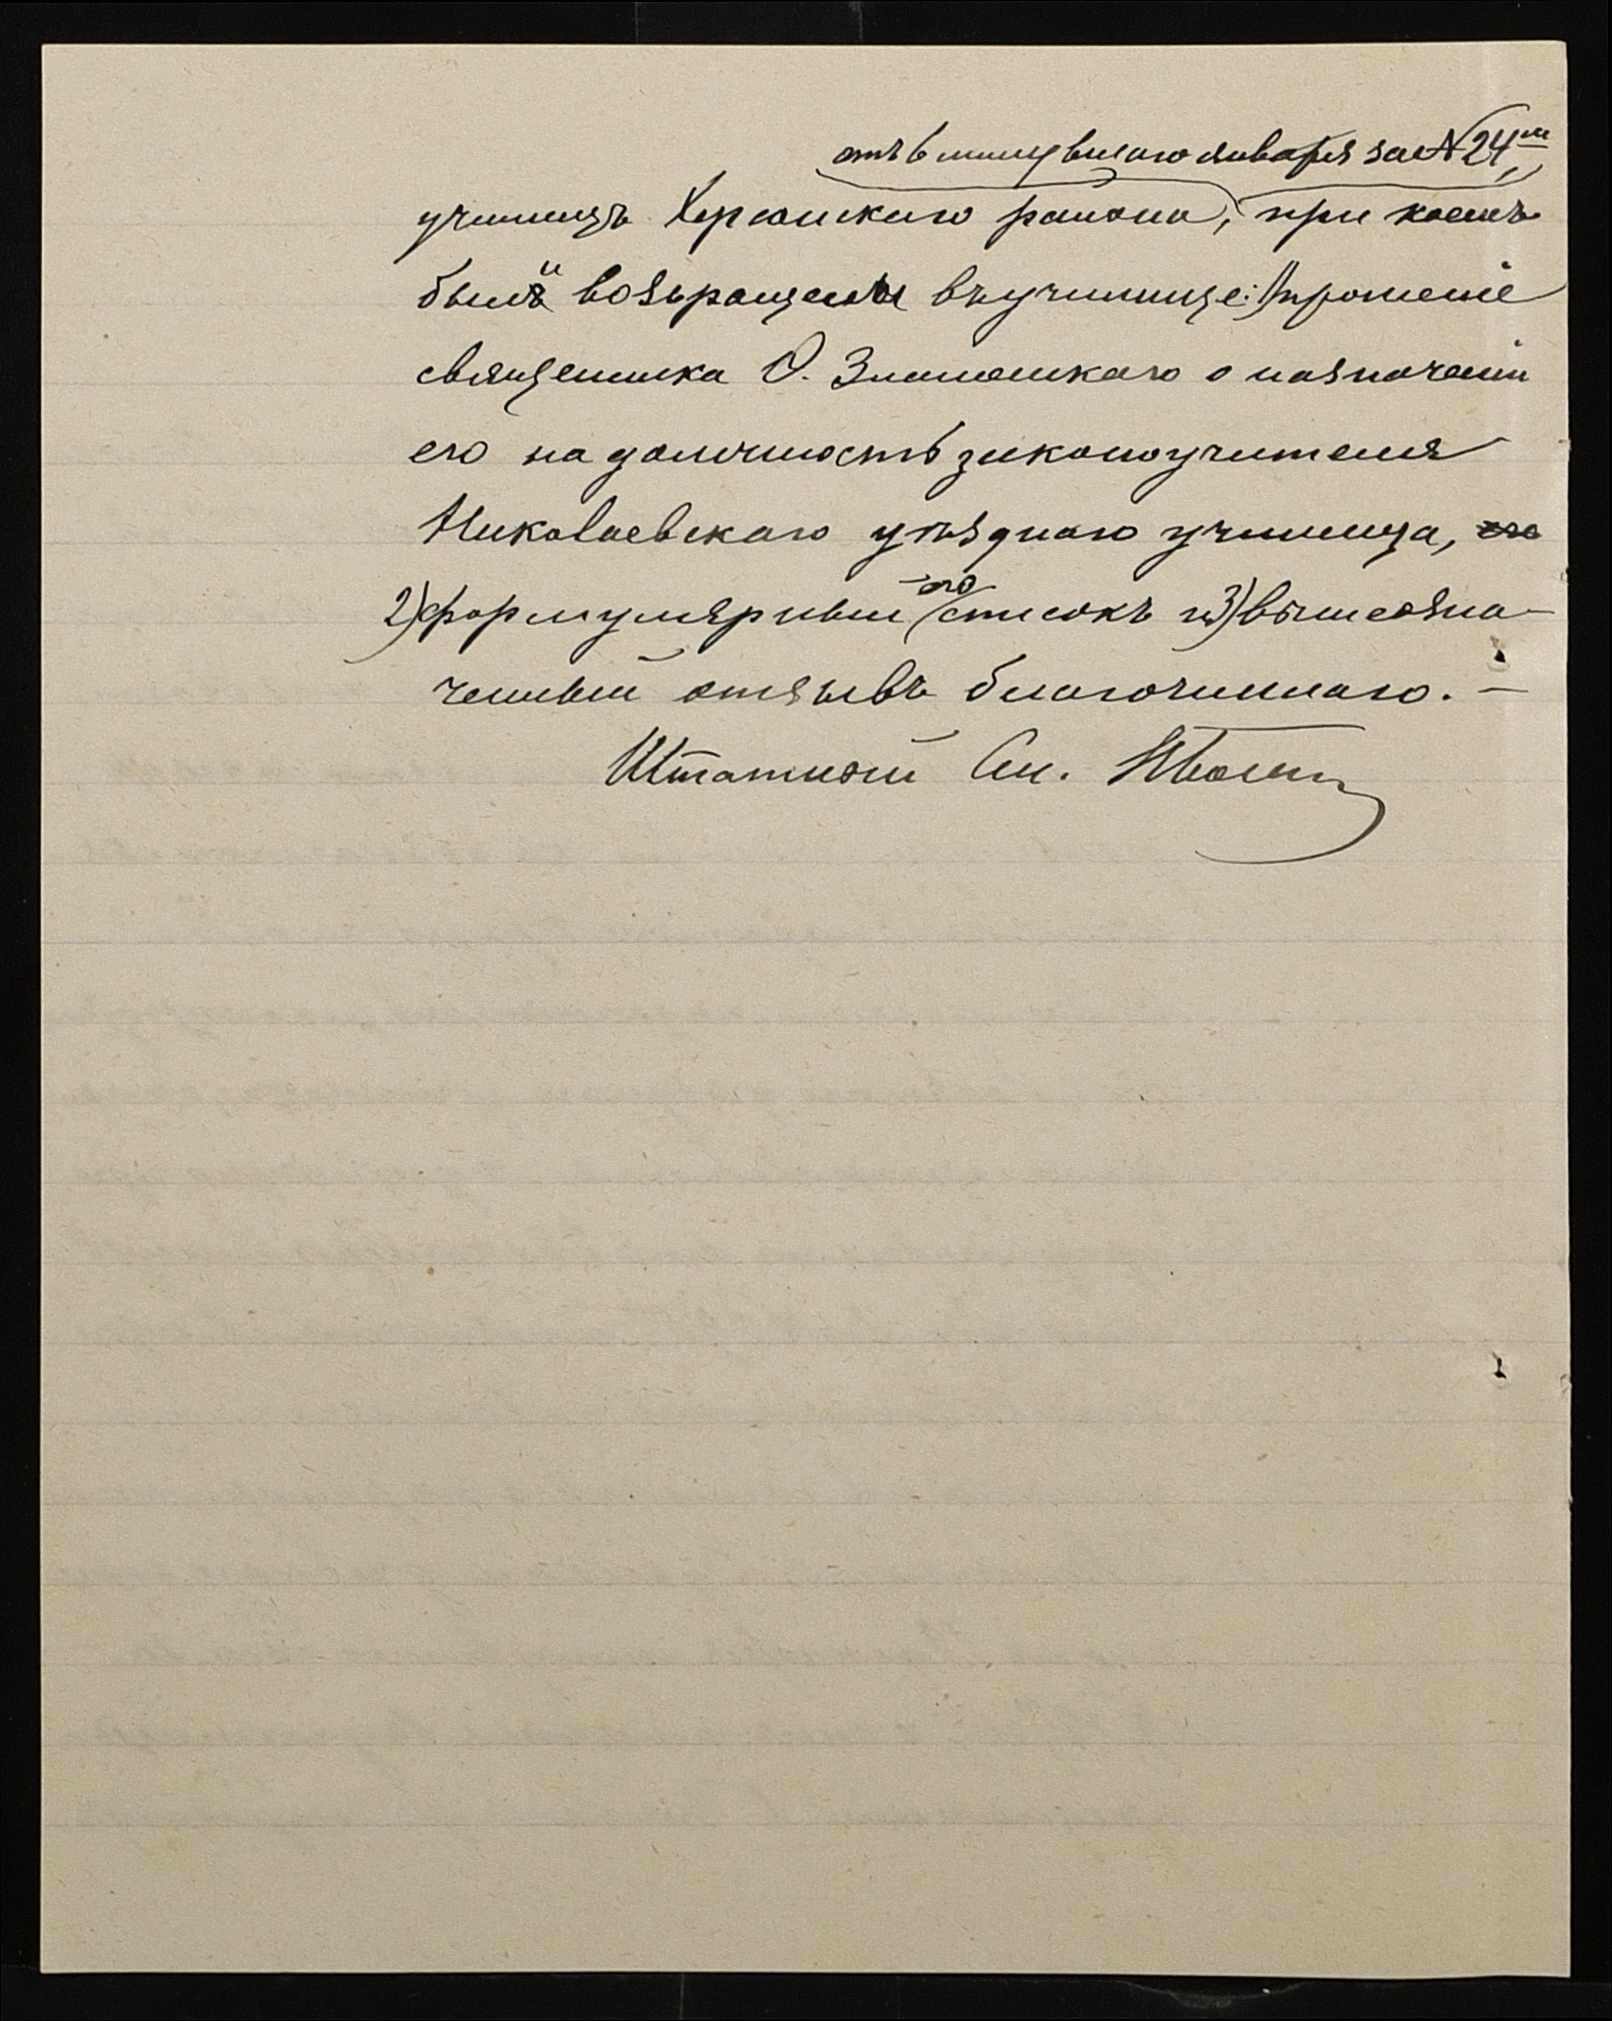 отъ 6 минувшаго января за №24м
училищъ Херсонскаго района, при коемъ
были возвращены въ училище: 1) прошеніе
священника О. Знаменскаго о назначеніи
его на должность законоучителя
Николаевскаго уѣзднаго училища,
2) формулярный его списокъ и 3) вышеозна-
ченный отзывъ благочиннаго. —
Штатной См.